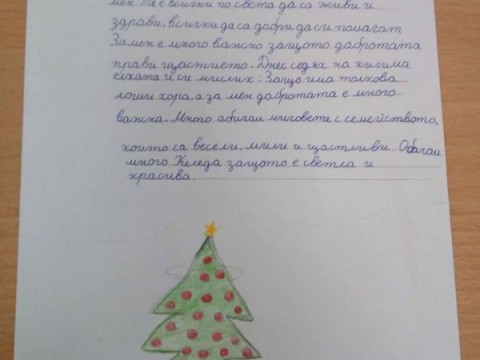 мен. Те е всички по света да са живи и
здрави, всички да са добри да си помагат
За мен е много важно защото добротата
прави щастието. Днес седях на килима
елхата и си мислих: Защо има толкова
лоши хора а за мен добротата е много
важна. Много обичам миговете с семейството,
които са весели, мили и щастливи. Обичам
много Коледа защото е светла и
красива.